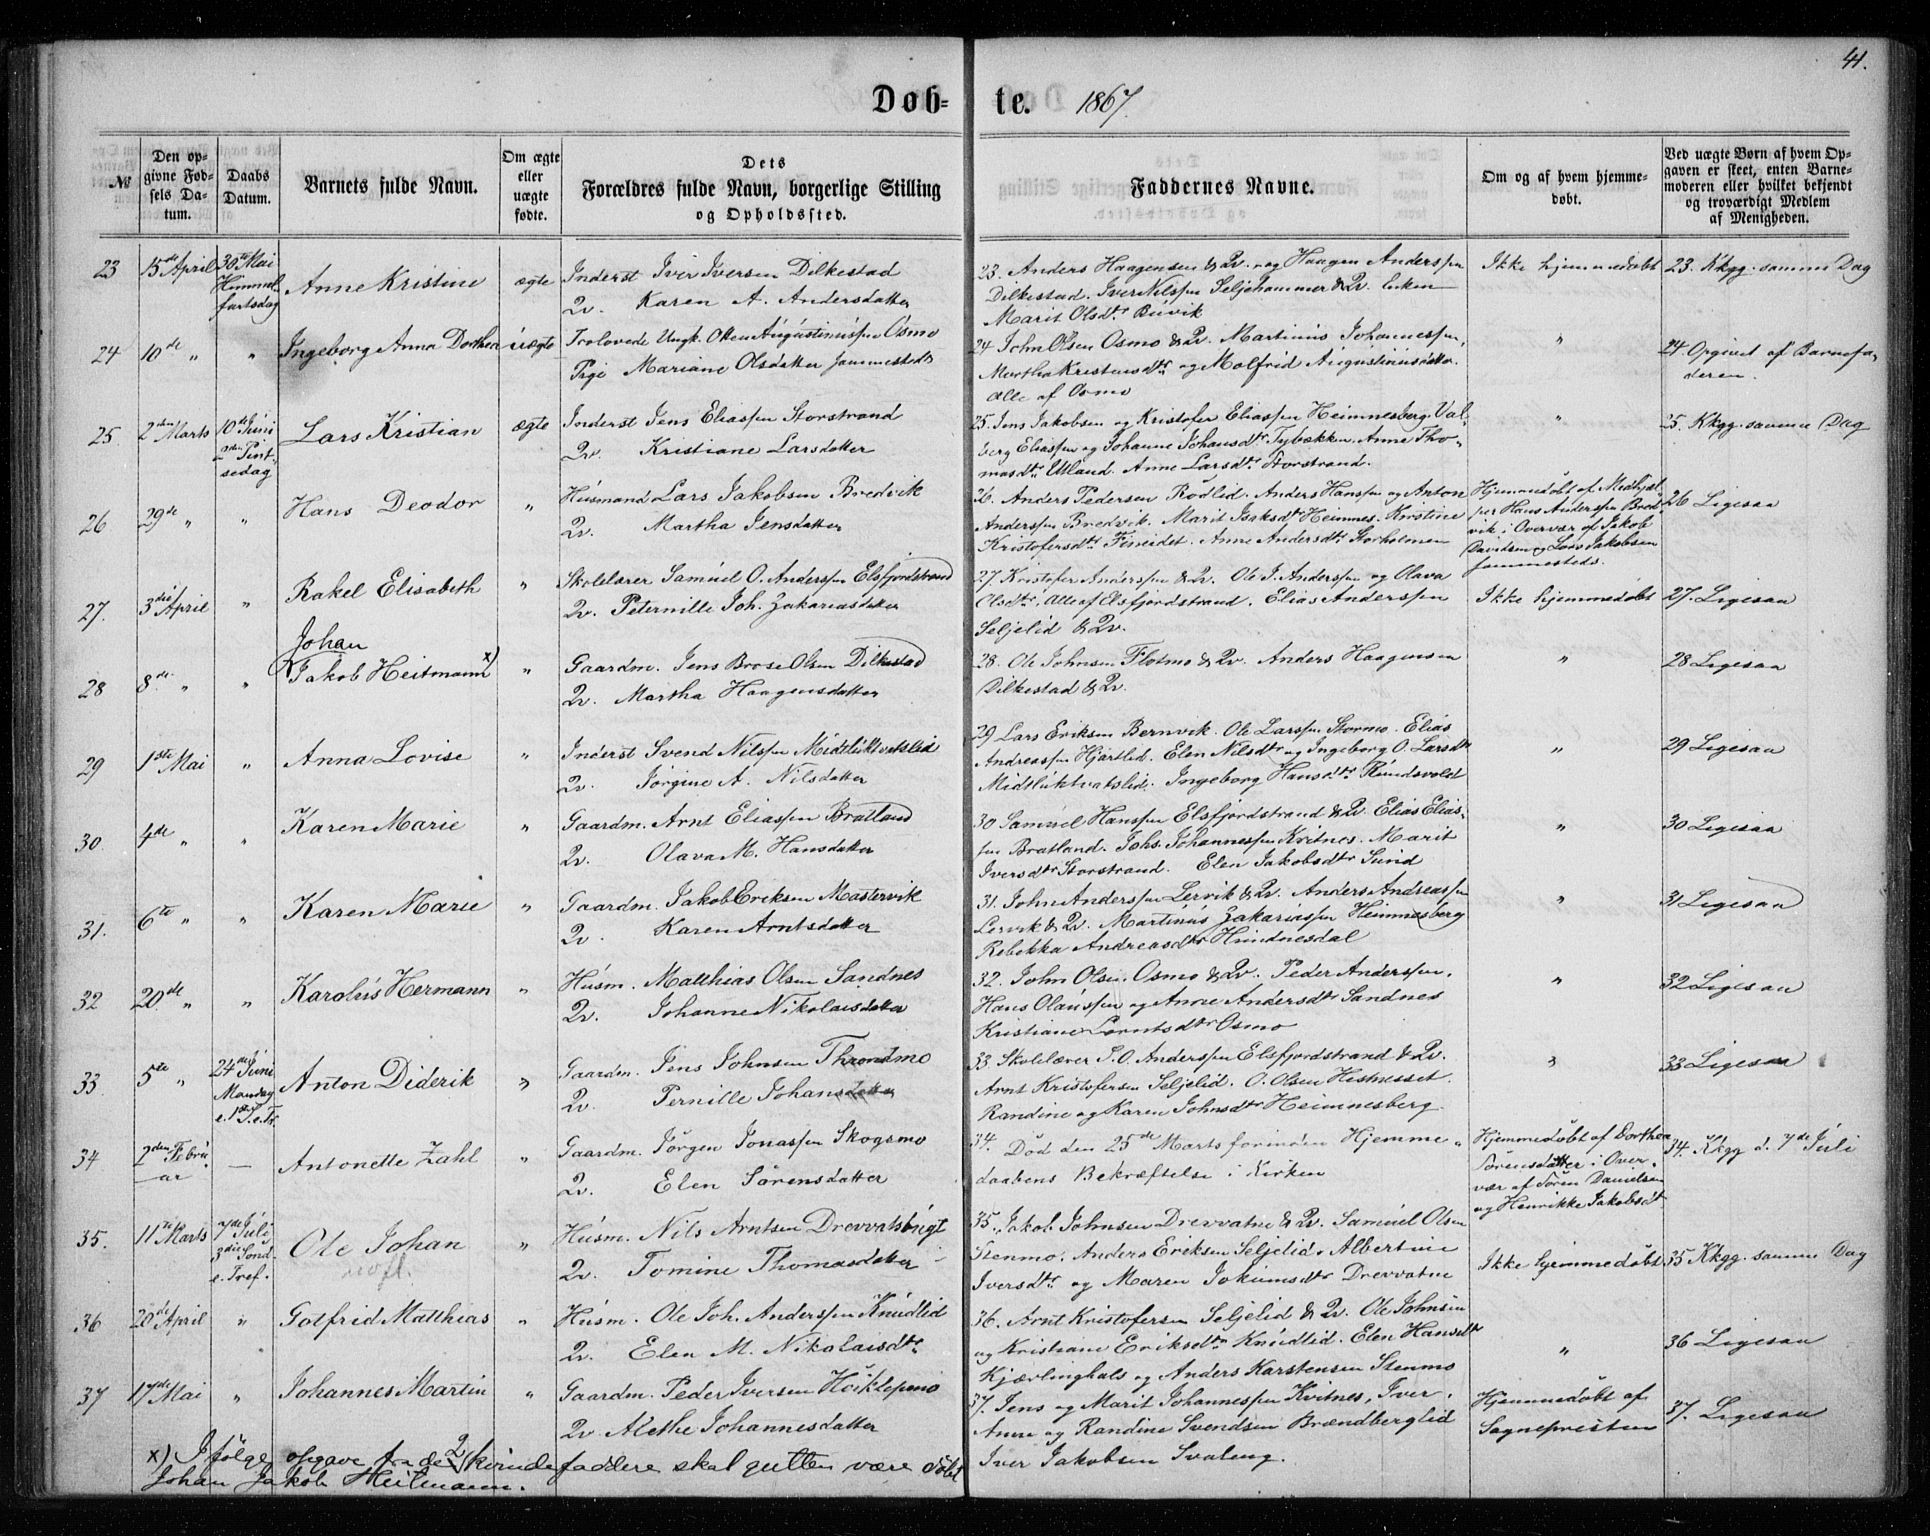 41.
Døb-te. 1867.
№
Den opgivne Fødsels Datum.
Daabs Datum.
Barnets fulde Navn.
Om ægte eller uægte fødte.
Dets Forældres fulde Navn, borgerlige Stilling og Opholdssted.
Faddernes Navne.
Om og af hvem hjemmedøbt.
Ved uægte Børn af hvem Opgaven er skeet, enten Barnemoderen eller hvilket bekjendt og troværdigt Medlem af Menigheden.
23 15de April 30te Mai Himmelfartsdag Anne Kristine ægte
Inderst Iver Iversen Dilkestad
Qv. Karen A. Andersdatter
23. Anders Haagensen & Qv. og Haagen Anderssen
Dilkestad. Iver Nilssen Seljehammer & Qv. Enken
Marit Olsdtr Buvik
Ikke hjemmedøbt
23. Kkgg. samme Dag
24 10de " " Ingeborg Anna Dorthea uægte
Trolovede Ungk. Otten Augustinussen Osmo
Pige Mariane Olsdatter sammesteds
24 John Olsen Osmo & Qv. Martinus Johannessen,
Martha Kristensdtr og Molfrid Augustinusdatter.
Alle af Osmo
"
24. Opgivet af Barnefaderen.
25. 2den Marts 10de Juni 2den Pintsedag Lars Kristian ægte
Inderst Jens Eliassen Storstrand
Qv. Kristiane Larsdatter
25. Jens Jakobsen og Kristofer Eliassen Heimnesberg. Valberg Eliassen og Johanne Johansdtr Tybækken. Anne Thomasdtr Utland. Anne Larsdtr Storstrand.
"
25. Kkgg. samme Dag
26 29de " " Hans Deodor "
Husmand Lars Jakobsen Bredvik
Qv. Martha Jensdatter
26. Anders Pedersen Rødlid. Anders Hanssen og Anton
Anderssen Bredvik. Marit Isaksdtr Heimnes. Kirstine
Kristofersdtr Fineidet. Anne Andersdtr Storholmen
Hjemmedøbt af Medhjælper Hans Anderssen Bredvik i Overvær af Jakob
Davidsen og Lars Jakobsen
sammesteds.
26 Ligesaa
27. 3die April " Rakel Elisabeth "
Skolelærer Samuel O. Anderssen Elsfjordstrand
Qv. Peternille Joh. Zakariasdatter
27. Kristofer Anderssen & Qv. Ole J. Anderssen og Olava
Olsdtr, Alle af Elsfjordstrand. Elias Anderssen
Seljelid & Qv.
Ikke hjemmedøbt
27. Ligesaa
28 8de " " Johan Jakob Heitmann x) "
Gaardm. Jens Brose Olsen Dilkestad
Qv. Martha Haagensdatter
28. Ole Johnsen Flotmo & Qv. Anders Haagensen
Dilkestad & Qv.
"
28 Ligesaa
29 1ste Mai " Anna Lovise "
Inderst Svend Nilssen Midtluktvatslid
Qv. Jørgine A. Nilsdatter
29 Lars Eriksen Bernvik. Ole Larssen Stormo. Elias
Andreassen Hjartlid. Elen Nilsdtr og Ingeborg O. Larsdtr
Midtluktvatslid. Ingeborg Hansdtr Rundsvold
"
29 Ligesaa
30 4de " " Karen Marie "
Gaardm. Arnt Eliassen Bratland
Qv. Olava M. Hansdatter
30 Samuel Hanssen Elsfjordstrand & Qv. Elias Eliassen Bratland. Johs. Johannessen Kvitnes. Marit
Iversdtr Storstrand. Elen Jakobsdtr Sund
"
30 Ligesaa
31. 6te " " Karen Marie "
Gaardm. Jakob Eriksen Mastervik
Qv. Karen Arntsdatter
31. John Anderssen Lervik & Qv. Anders Andreassen
Lervik & Qv. Martinus Zakariassen Heimnesberg
Rebekka Andreasdtr Hundnesdal
"
31 Ligesaa
32 20de " " Karolus Hermann "
Husm. Matthias Olsen Sandnes
Qv. Johanne Nikolaisdatter
32. John Olsen Osmo & Qv. Peder Anderssen.
Hans Olaussen og Anne Andersdtr Sandnes
Kristiane Lorntsdtr Osmo
"
32 Ligesaa
33 5te " 24de Juni Mandag e. 1 S. e. Tr. Anton Diderik "
Gaardm. Jens Johnsen Throndmo
Qv. Pernille Johansdatter
33. Skolelærer S. O. Anderssen Elsfjordstrand & Qv.
Arnt Kristofersen Seljelid. O. Olsen Hestnesset.
Randine og Karen Johnsdtr Heimnesberg.
"
33 Ligesaa
34 2den Februar — Antonette Zahl "
Gaardm. Jørgen Jonassen Skogsmo
Qv. Elen Sørensdatter
34. Død den 25de Marts forinden Hjemmedaabens Bekræftelse i Kirken
Hjemmedøbt af Dorthea
Sørensdatter i Overvær af Søren Danielsen
og Henrikke Jakobsdtr
34. Kkgg. d. 7de Juli
35. 11te Marts 7de Juli 3die Sønd. e. Tref. Ole Johan "
Husm. Nils Arntsen Drevvatsbugt
Qv. Tomine Thomasdatter
35. Jakob Johnsen Drevvatne & Qv. Samuel Olsen
Stenmo. Anders Eriksen Seljelid. Albertine
Iversdtr og Maren Jokumsdtr Drevvatne
Ikke hjemmedøbt
35 Kkgg. samme Dag
36 20de April " Gotfrid Matthias "
Husm. Ole Joh. Anderssen Knudlid
Qv. Elen M. Nikolaisdtr
36. Arnt Kristofersen Seljelid & Qv. Ole Johnsen
og Kristiane Eriksdtr Knudlid. Elen Hansdtr
Kjærlinghals og Anders Karstensen Stenmo
"
36 Ligesaa
37 17de Mai " Johannes Martin "
Gaardm. Peder Iversen Høiklepmo
Qv. Alethe Johannesdatter
37. Jens og Marit Johannessen Kvitnes, Iver.
Anne og Randine Svendsen Brændberglid
Iver Jakobsen Svaleng.
Hjemmedøbt af
Sognepresten
37. Ligesaa
x) Ifølge opgave fra de 2 kvindefaddere skal gutten være døbt
Johan Jakob Heitmann.